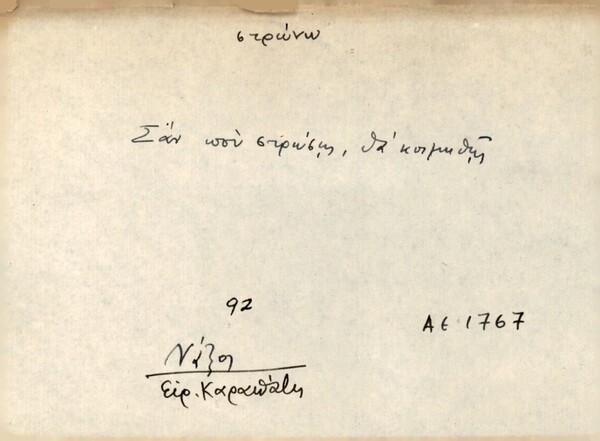 στρώνω
Σὰν ποὺ στρώσῃς, θὰ κοιμηθῇς
92
ΑΕ 1767
Νάξος
Εἰρ. Καραπάτη